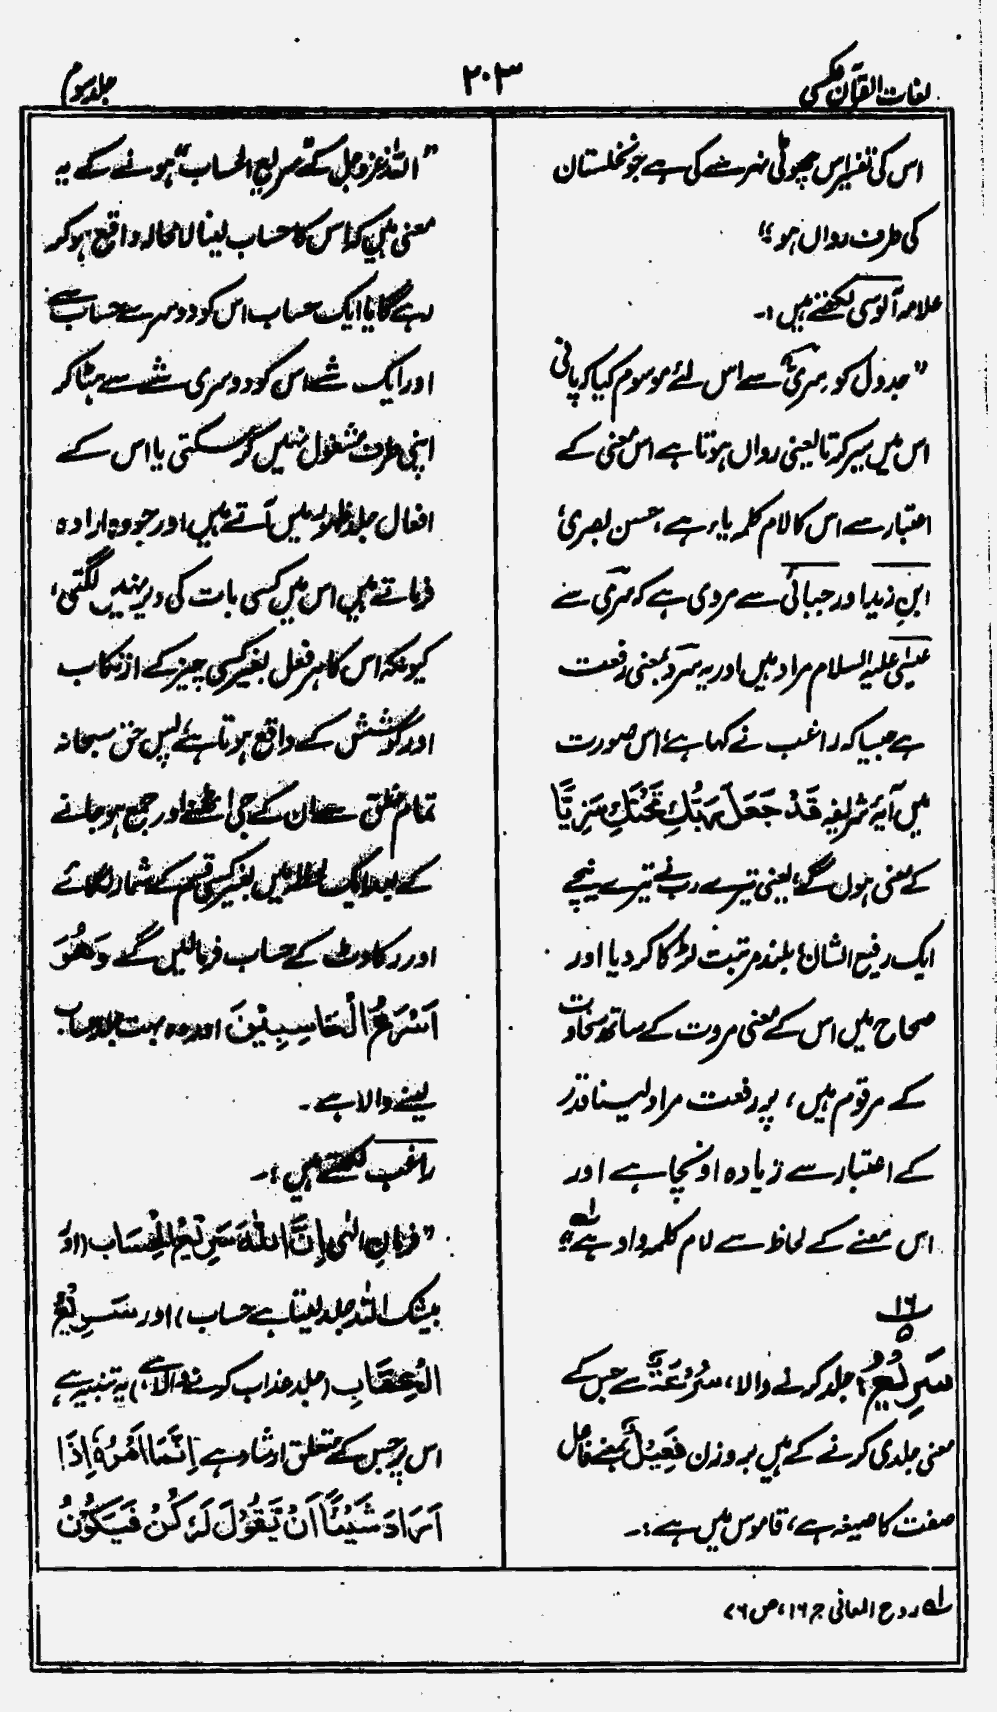 لغات القرآن عکسی
۲۰۳
جلد سوم
اس کی تفسیر اس چھوٹی نہر سے کی ہے جو نخلستان
کی طرف رواں ہو"
علامہ آلوسی لکھتے ہیں:۔
"جدول کو سری سے اس لئے موسوم کیا کہ پانی
اس میں سیر کرتا یعنی رواں ہوتا ہے اس معنی کے
اعتبار سے اس کا لام کلمہ یاء ہے، حسن بصریؒ
ابن زید اور جبائی سے مروی ہے کہ سَرِی سے
عیسٰی علیہ السلام مراد ہیں اور یہ سرو بمعنی رفعت
ہے جیسا کہ راغب نے کہا ہے، اس صورت
میں آیۂ شریفہ قَدْ جَعَلَ رَبُّكِ تَحْتَكِ سَرِيًّا
کے معنی ہوں گے، یعنی تیرے رب نے تیرے نیچے
ایک رفیع الشان، بلند مرتبت لڑکا کر دیا اور
صحاح میں اس کے معنی مروت کے ساتھ سخاوت
کے مرقوم ہیں، پر رفعت مراد لینا قدر
کے اعتبار سے زیادہ اونچا ہے اور
اس معنے کے لحاظ سے لام کلمہ واو ہے" لہ
۱۶
۵
سَرِیْعُ: جلد کرنے والا، سُرْعَۃٌ سے جس کے
معنی جلدی کرنے کے ہیں بروزن فَعِیْلٌ بمعنے فاعل
صفت کا صیغہ ہے، قاموس میں ہے:۔
"اللہ عزوجل کے "سریع الحساب" ہونے کے یہ
معنی ہیں کہ اس کا حساب لینا لامحالہ واقع ہو کر
رہے گا یا ایک حساب اس کو دوسرے حساب سے
اور ایک شے اس کو دوسری شے سے ہٹا کر
اپنی طرف مشغول نہیں کر سکتی یا اس کے
افعال جلد ظہور میں آتے ہیں اور جو وہ ارادہ
فرماتے ہیں اس میں کسی بات کی دیر نہیں لگتی،
کیونکہ اس کا ہر فعل بغیر کسی چیز کے ارتکاب
اور کوشش کے واقع ہوتا ہے، پس حق سبحانہ
تمام خلق سے ان کے جی اٹھنے اور جمع ہو جانے
کے بعد ایک لحظہ میں بغیر کسی قسم کے شمار لگائے
اور رکاوٹ کے حساب فرمالیں گے وَهُوَ
اَسْرَعُ الْحَاسِبِيْنَ اور وہ بہت جلد حساب
لینے والا ہے۔
راغب لکھتے ہیں:۔
"فرمانِ الٰہی اِنَّ اللّٰهَ سَرِيْعُ الْحِسَاب (اور
بیشک اللہ جلد لیتا ہے حساب) اور سَرِیْعُ
الْعِقَابِ (جلد عذاب کرنے والا ہے) یہ تنبیہ ہے
اس پر جس کے متعلق ارشاد ہے اِنَّمَا اَمْرُهٗ اِذَا
اَرَادَ شَيْئًا اَنْ يَّقُوْلَ لَهٗ كُنْ فَيَكُوْنُ
لہ روح المعانی ج ۱۶، ص ۷۶